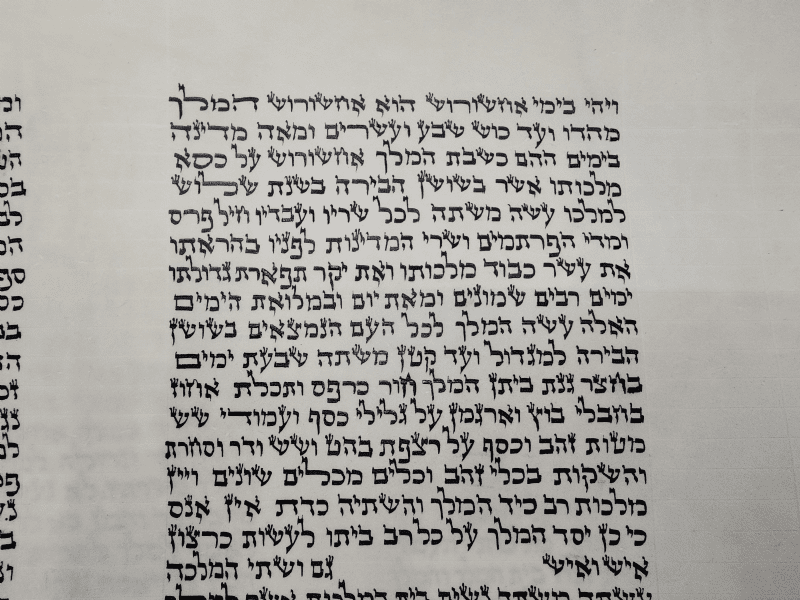 ויהי בימי אחשורוש הוא אחשורוש המלך
מהדו ועד כוש שבע ועשרים ומאה מדינה
בימים ההם כשבת המלך אחשורוש על כסא
מלכותו אשר בשושן הבירה בשנת שלוש
למלכו עשה משתה לכל שריו ועבדיו חיל פרס
ומדי הפרתמים ושרי המדינות לפניו בהראתו
את עשר כבוד מלכותו ואת יקר תפארת גדולתו
ימים רבים שמונים ומאת יום ובמלואת הימים
האלה עשה המלך לכל העם הנמצאים בשושן
הבירה למגדול ועד קטן משתה שבעת ימים
בחצר גנת ביתן המלך חור כרפס ותכלת אחוז
בחבלי בוץ וארגמן על גלילי כסף ועמודי שש
מטות זהב וכסף על רצפת בהט ושש ודר וסחרת
והשקות בכלי זהב וכלים מכלים שונים ויין
מלכות רב כיד המלך והשתיה כדת אין אנס
כי כן יסד המלך על כל רב ביתו לעשות כרצון
איש ואיש גם ושתי המלכה